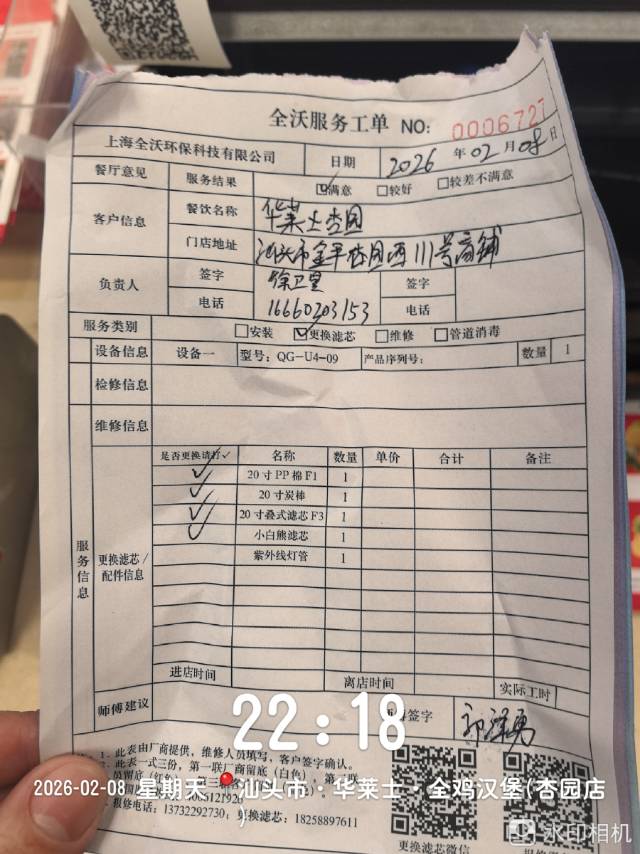 全沃服务工单 NO: 0006727
上海全沃环保科技有限公司 日期 2026 年 02 月 08 日
餐厅意见 服务结果 ☑满意 □较好 □较差不满意
客户信息 餐饮名称 华莱士杏园
门店地址 汕头市金平杏园西111号商铺
负责人 签字 徐卫星 签字
电话 16660203153 电话
服务类别 □安装 ☑更换滤芯 □维修 □管道消毒
设备信息 设备一 型号: QG-U4-09 产品序列号: 数量 1
检修信息
维修信息
服务信息
更换滤芯/配件信息
是否更换请打✓ 名称 数量 单价 合计 备注
✓ 20寸PP棉F1 1
✓ 20寸炭棒 1
✓ 20寸叠式滤芯F3 1
✓ 小白熊滤芯 1
紫外线灯管 1
进店时间 离店时间 实际工时
师傅建议 签字 郭泽勇
22:18
1、此表由厂商提供，维修人员填写，客户签字确认。
2、此表一式三份，第一联厂商留底（白色），第二联
2026-02-08 星期天 汕头市·华莱士·全鸡汉堡(杏园店
报修电话: 13732292730; 更换滤芯: 18258897611
更换滤芯微信
水印相机